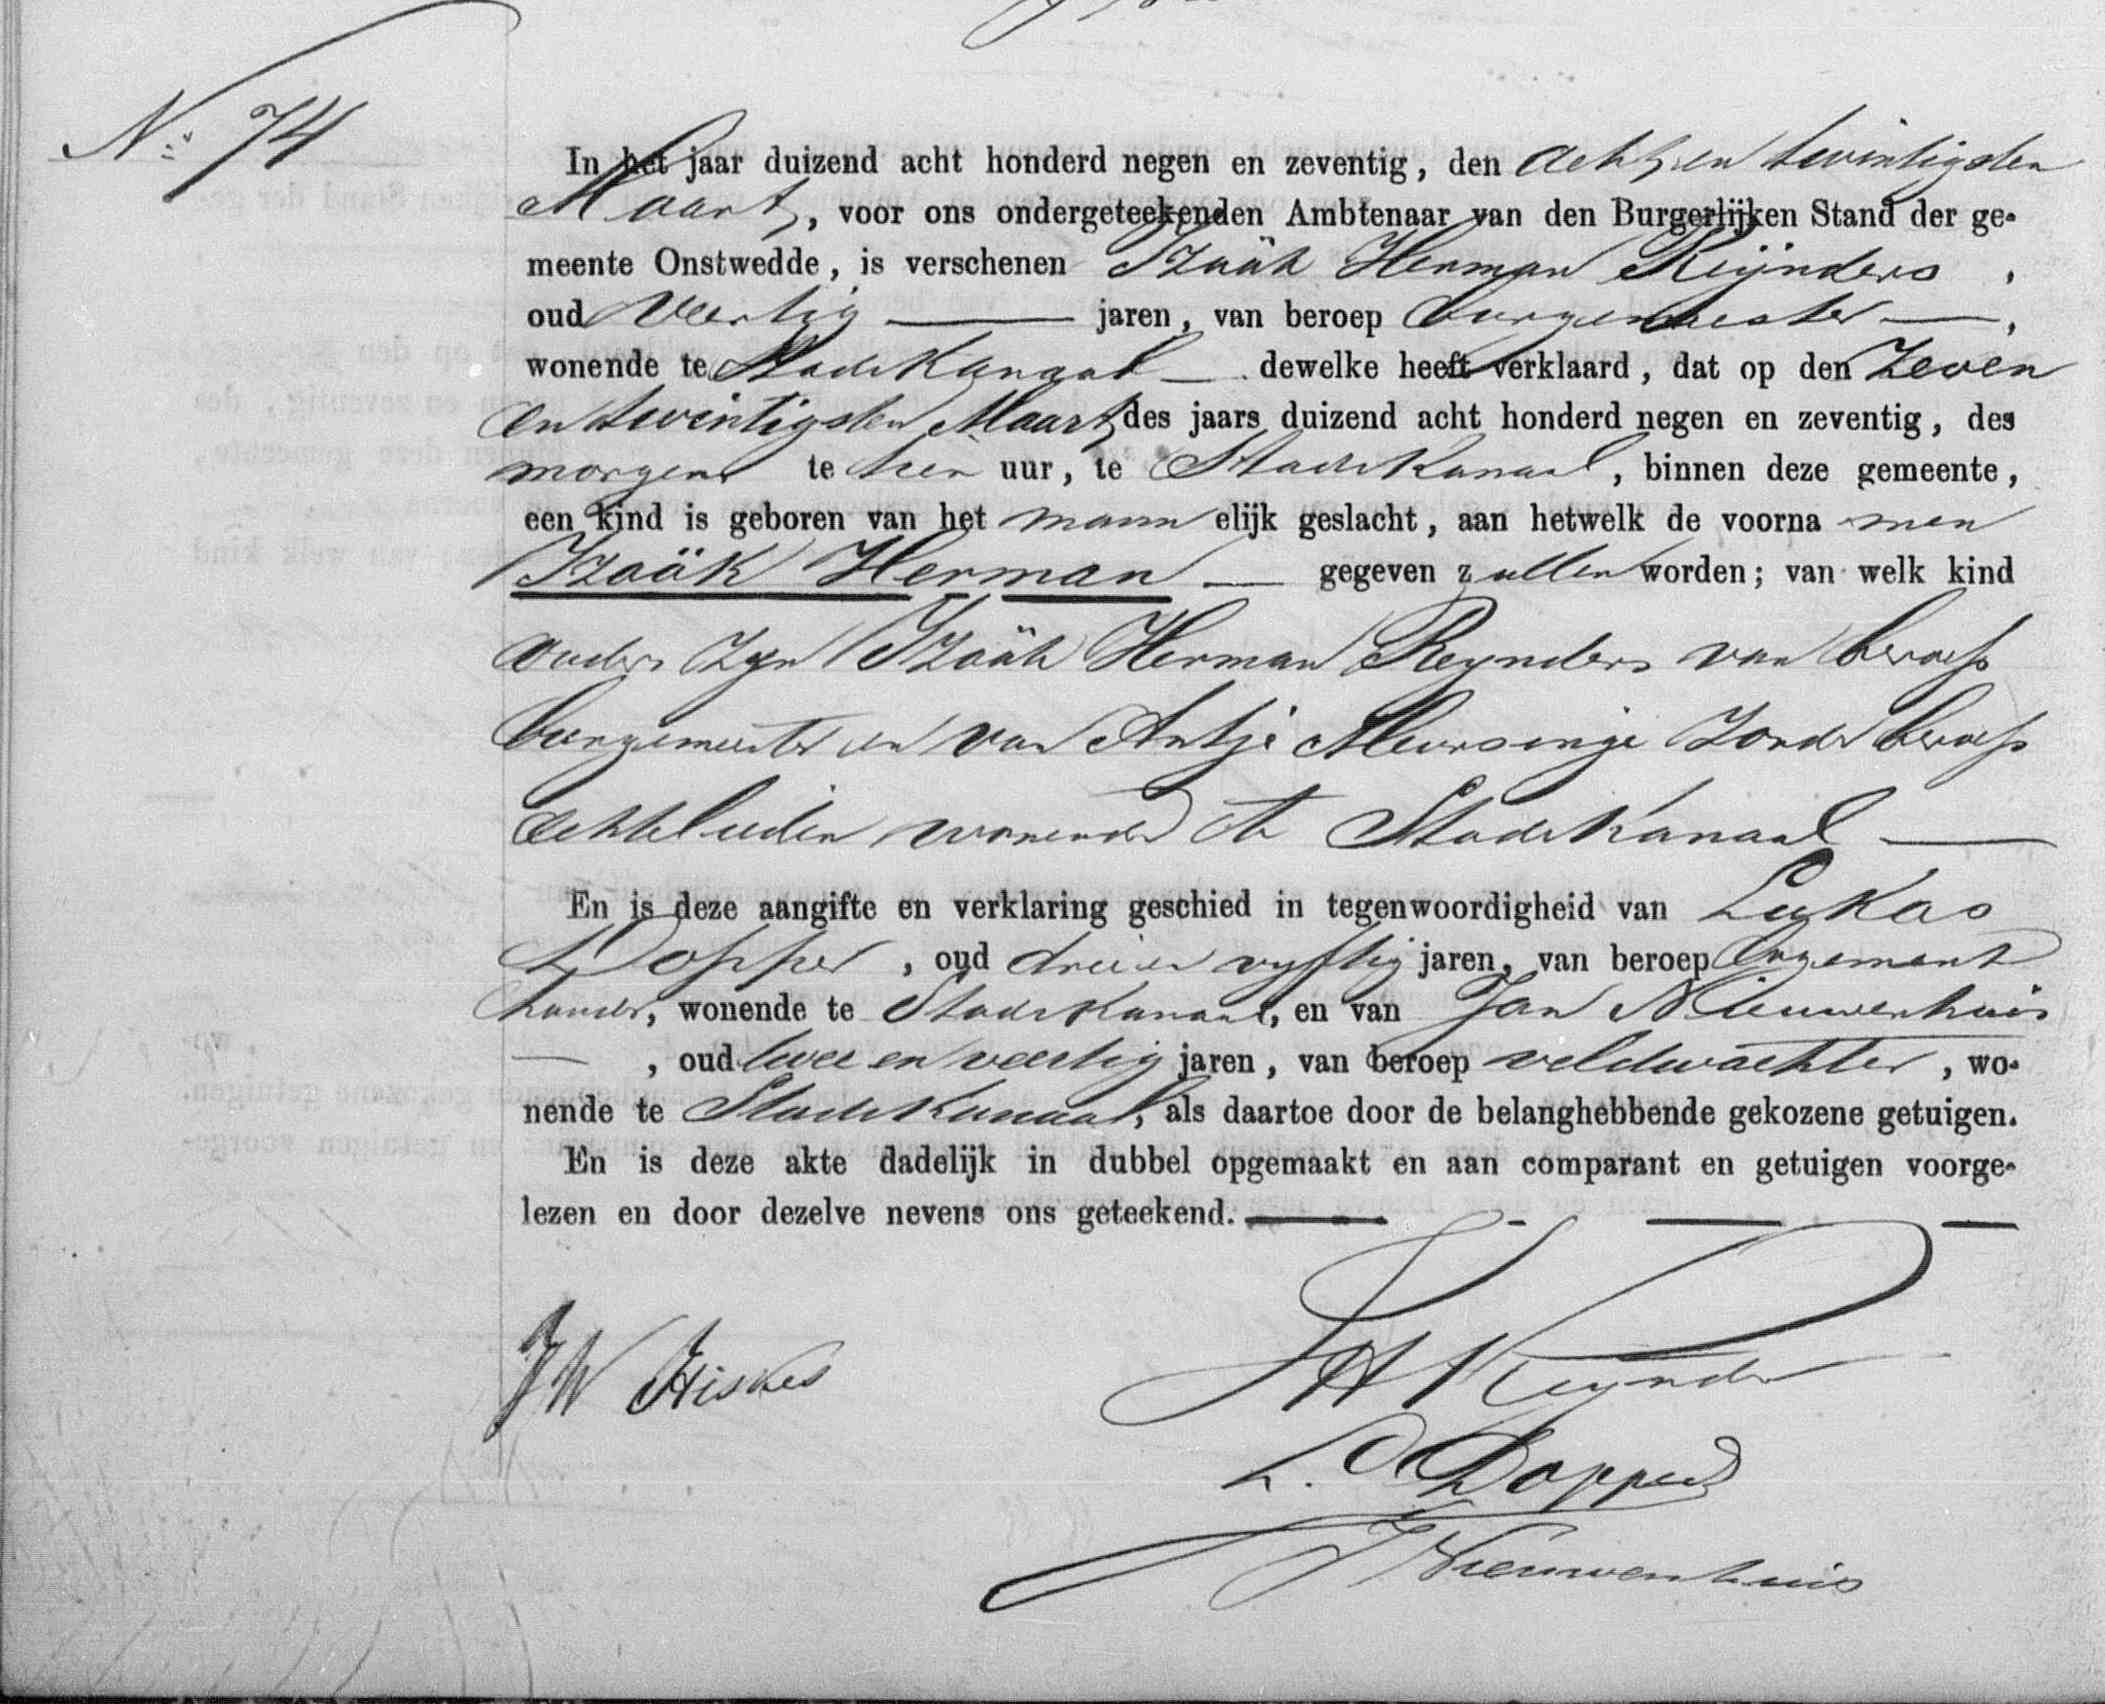 No 74
In het jaar duizend acht honderd negen en zeventig, den acht en twintigsten
Maart, voor ons ondergeteekenden Ambtenaar van den Burgerlijken Stand der ge-
meente Onstwedde, is verschenen Izaäk Herman Reijnders,
oud Veertig — jaren, van beroep burgemeester —,
wonende te Stadskanaal — dewelke heeft verklaard, dat op den Zeven
en twintigsten Maart des jaars duizend acht honderd negen en zeventig, des
morgens te tien uur, te Stadskanaal, binnen deze gemeente,
een kind is geboren van het mannelijk geslacht, aan hetwelk de voornamen
Izaäk Herman — gegeven zullen worden; van welk kind
ouders zijn Izaäk Herman Reynders van beroep
burgemeester en van Antje Meursinge Zonder beroep
echtelieden wonende te Stadskanaal —
En is deze aangifte en verklaring geschied in tegenwoordigheid van Lukas
Dopper, oud drie en vyftig jaren, van beroep logement
houder, wonende te Stadskanaal, en van Jan Nieuwenhuis
—, oud twee en veertig jaren, van beroep veldwachter, wo-
nende te Stadskanaal, als daartoe door de belanghebbende gekozene getuigen.
En is deze akte dadelijk in dubbel opgemaakt en aan comparant en getuigen voorge-
lezen en door dezelve nevens ons geteekend. — - — —
JW Hiskes
IH Reynders
L. Dopper
J Nieuwenhuis